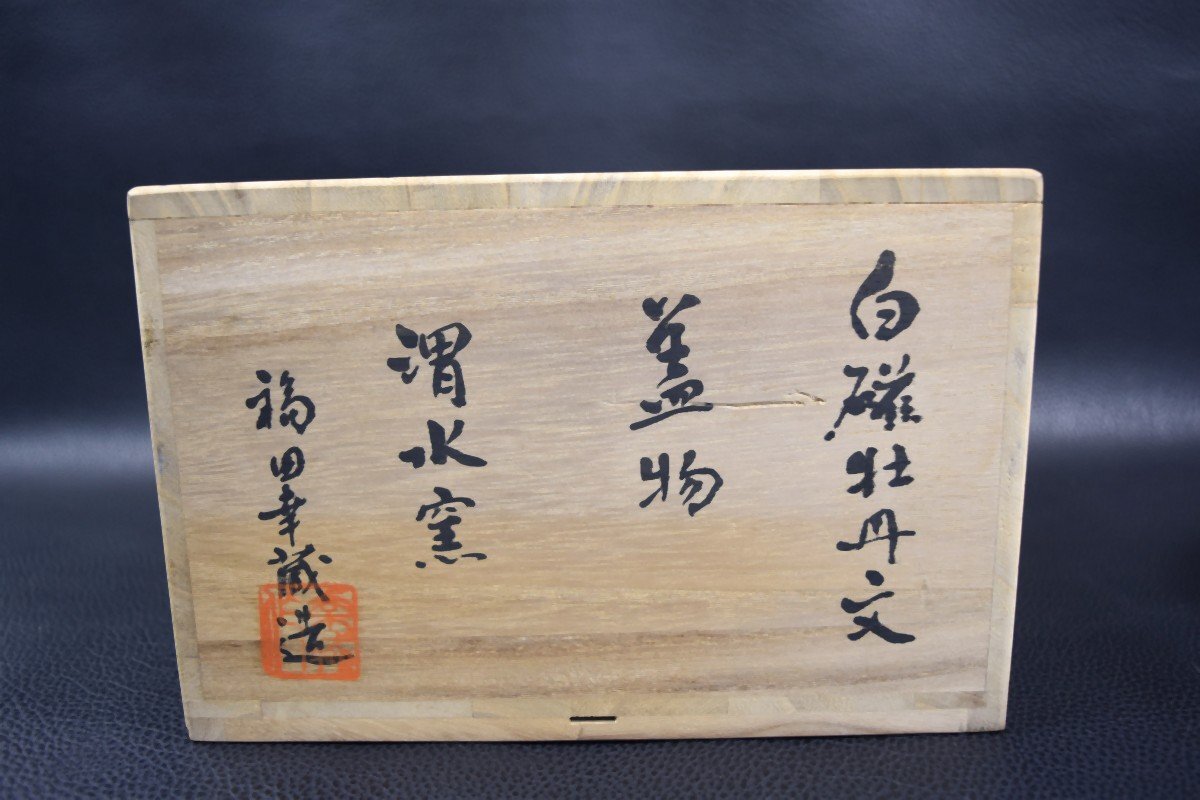 白磁牡丹文
蓋物
渭水窯
福田幸蔵造